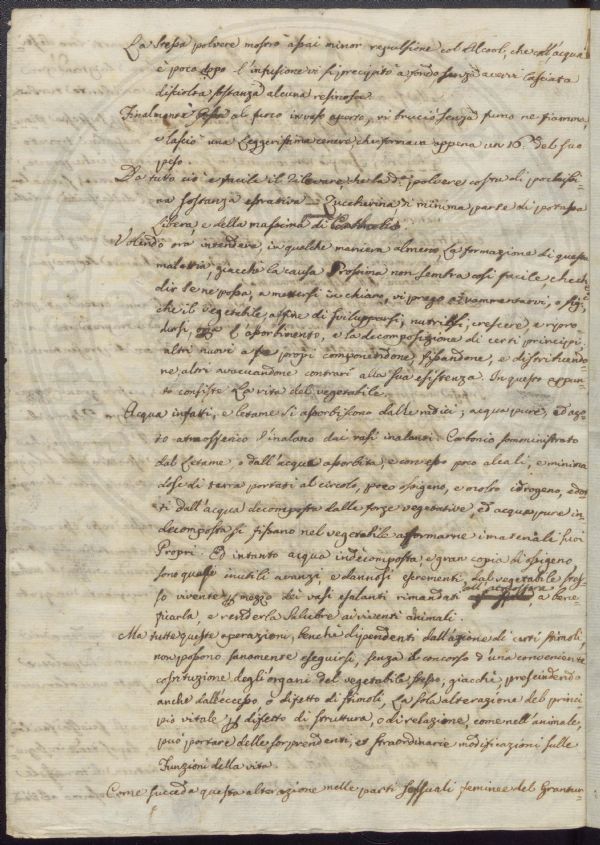 La stessa polvere mostrò assai minor repulsione col Alcool, che coll'acqua
e poco dopo l'infusione vi si precipitò a fondo senza averci lasciata
disciolta sostanza alcuna resinosa.
Finalmente al fuoco in vaso aperto, vi bruciò senza fumo ne fiamma,
e lasciò una Leggerissima cenere che formava appena un 16.º del suo
peso.
Da tutto ciò è facile il rilevare che la d.ª polvere costa di pochissi-
ma sostanza estrattiva Zuccherina di minima parte di potassa
Libera e della massima di
Volendo ora intendere, in qualche maniera almeno La formazione di questa
malattia, giacchè la causa Prossima non sembra così facile, che che
dir se ne possa, a mettersi in chiaro, vi prego a rammentarvi, o Sig.ri
che il vegetabile, affine di svilupparsi, nutrirsi, crescere, e ripro-
dursi, l'assorbimento, e la decomposizione di certi principj,
altri nuovi a se propri componendone, fissandone, e distribuendo-
ne altri evacuandone contrari alla sua esistenza. In questo appun-
to consiste La vita del vegetabile.
Acqua infatti, e letame si assorbiscono dalle radici; acqua pure, ed azo-
to atmosferico l'inalano dai vasi inalanti. Carbonio somministrato
dal Letame, o dall'acqua assorbita, e con esso poco alcali, e minima
dose di terra portati al circolo, poco ossigeno, e molto idrogeno, edot-
ti dall'acqua decomposta dalle forze vegetative, ed acqua pure in-
decomposta si fissano nel vegetabile a formarne i materiali suoi
Propri. Ed intanto acqua indecomposta, e gran copia di ossigeno
sono quasi inutili avanzi, e dannosi escrementi, dal vegetabile stes-
so vivente p mezzo dei vasi esalanti rimandati all'atmosfera a bene-
ficarla, e renderla salubre ai viventi animali.
Ma tutte queste operazioni, benchè dipendenti dall'azione di certi stimoli,
non possono sanamente eseguirsi, senza il concorso d'una conveniente
costituzione degli organi del vegetabile stesso, giacchè, prescindendo
anche dall'eccesso, o difetto di stimoli, La sola alterazione del princi-
pio vitale p difetto di struttura, o di relazione, come nell'animale,
può portare delle sorprendenti, et straordinarie modificazioni sulle
Funzioni della vita.
Come succeda questa alterazione nelle parti sessuali feminee del Grantur-